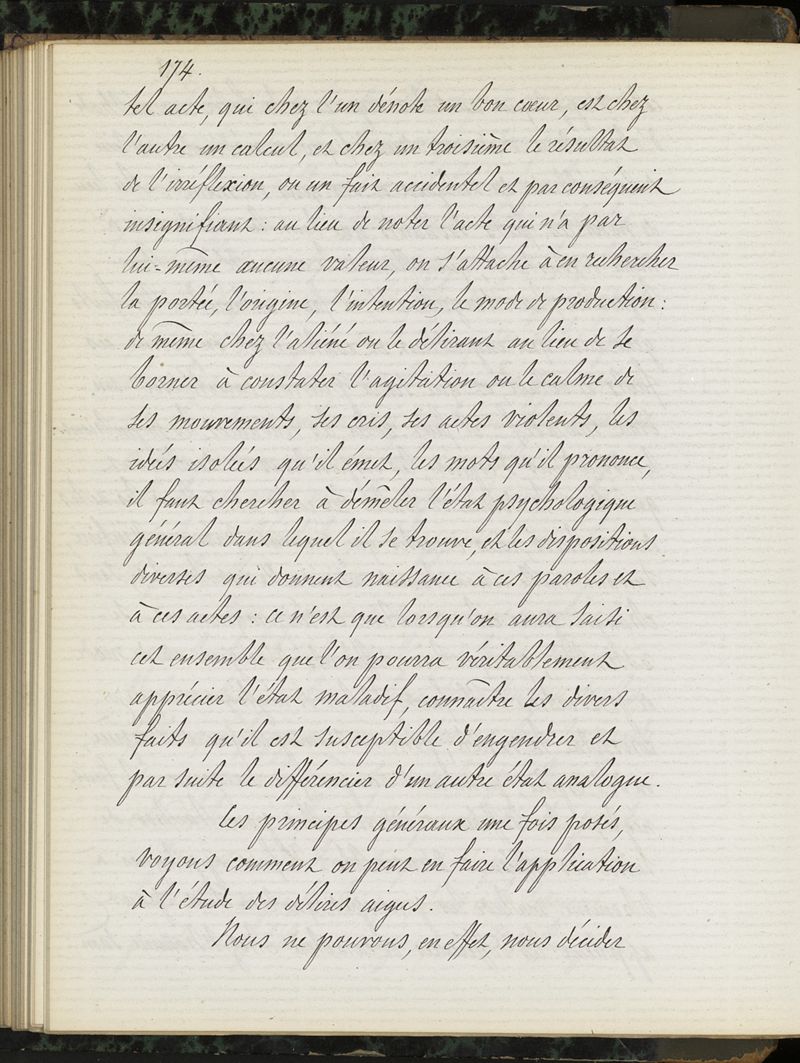 174.
tel acte, qui chez l'un dénote un bon cœur, est chez
l'autre un calcul, et chez un troisième le résultat
de l'irréflexion, ou un fait accidentel et par conséquent
insignifiant : au lieu de noter l'acte qui n'a par
lui-même aucune valeur, on s'attache à en rechercher
la portée, l'origine, l'intention, le mode de production :
de même chez l'aliéné ou le délirant au lieu de se
borner à constater l'agitation ou le calme de
ses mouvements, ses cris, ses actes violents, les
idées isolées qu'il émet, les mots qu'il prononce,
il faut chercher à démêler l'état psychologique
général dans lequel il se trouve, et les dispositions
diverses qui donnent naissance à ces paroles et
à ces actes : ce n'est que lorsqu'on aura saisi
cet ensemble que l'on pourra véritablement
apprécier l'état maladif, connaître les divers
faits qu'il est susceptible d'engendrer et
par suite le différencier d'un autre état analogue.
Ces principes généraux une fois posés,
voyons comment on peut en faire l'application
à l'étude des délires aigus.
Nous ne pouvons, en effet, nous décider